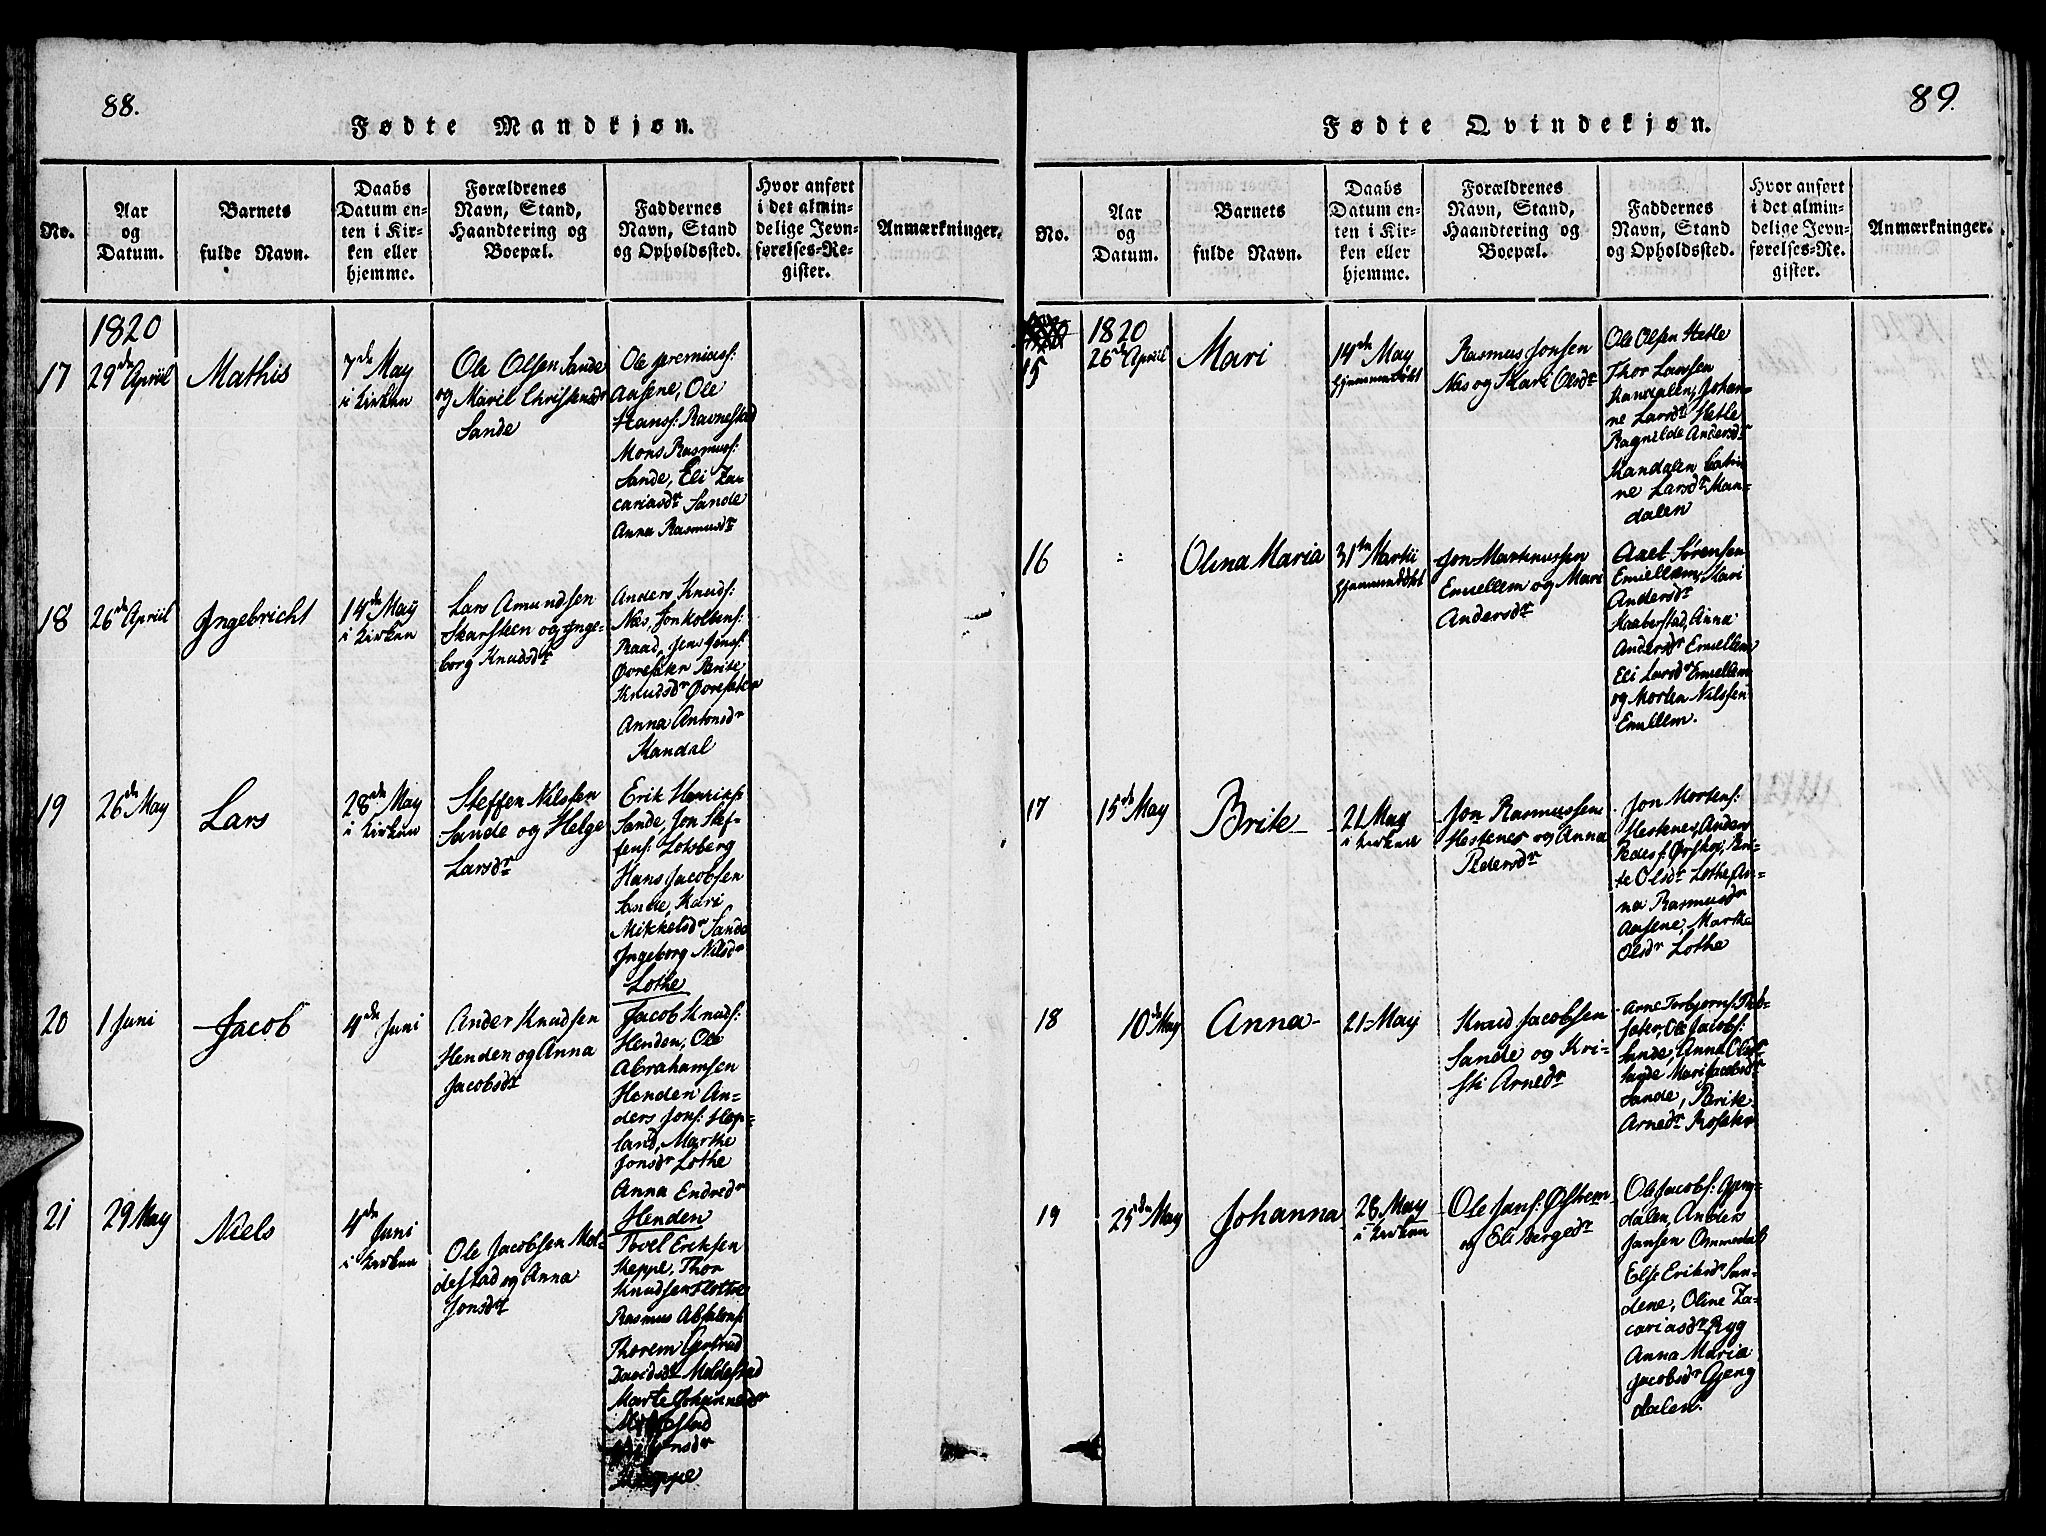 88.
Fødte Mandkjøn.
No.
Aar
og
Datum.
Barnets
fulde Navn.
Daabs
Datum en-
ten i Kir-
ken eller
hjemme.
Forældrenes
Navn, Stand,
Haandtering og
Boepæl.
Faddernes
Navn, Stand
og Opholdssted.
Hvor anført
i det almin-
delige Jevn-
førelses-Re-
gister.
Anmærkninger.
1820
17
29de Apriil
Mathis
7de May
i Kirken
Ole Olsen Sande
og Marie Christensdr
Sande
Ole
Aasene, Ole
Hanss: Ravnestad
Mons Rasmuss:
Sande, Eli Za-
cariasdr Sande
Anna Rasmusdr
18
26de Apriil
Ingebricht
14de May
i Kirken
Lars Amundsen
Skarsteen og Inge-
borg Knudsdr
Anders Knuds:
Nes, Jon
Raad, Jens Jens:
Øvreseter Brite
Knudsdr Øvreseter
Anna Antonsdr
Kandal
19
26de May
Lars
28de May
i Kirken
Steffen Nilssen
Sande og Helge
Larsdr
Erik Henriks:
Sande, Jon Stef-
fens: Lotsberg
Hans Jacobsen
Sande, Kari
Mikkelsdr Sande
Ingeborg Nilsdr
Lothe
20
1 Juni
Jacob
4de Juni
Ander Knudsen
Henden og Anna
Jacobsdr
Jacob Knuds:
Henden, Ole
Abrahamsen
Henden An-
ders Jons: Hop-
land, Marthe
Jonsdr Lothe
Anna Endredr
Henden
21
29 May
Niels
4de Juni
i Kirken
Ole Jacobsen Mol-
destad og Anna
Jonsdr
Thoel Eriksen
Heppe, Thor
Knudsen Flotte
Rasmus Absalons:
Thorem Gertrud
Davidsdr Moldestad
Marte Johannesdr
Moldestad
Heppe
89.
Fødte Qvindekjøn.
No.
Aar
og
Datum.
Barnets
fulde Navn.
Daabs
Datum en-
ten i Kir-
ken eller
hjemme.
Forældrenes
Navn, Stand,
Haandtering og
Boepæl.
Faddernes
Navn, Stand
og Opholdssted.
Hvor anført
i det almin-
delige Jevn-
førelses-Re-
gister.
Anmærkninger.
1820
15
26de Apriil
Mari
14de May
hjemmedøbt
Rasmus Jonsen
Nes og Kari Olsdr
Ole Olsen Hetle
Thor Larssen
Kandalen, Johan-
ne Larsdr Hetle
Ragnilde Andersdr
Kandalen Catri-
ne Larsdr Man-
dalen
16
Olina Maria
31te Martii
hjemmedøbt
Jon Martinussen
Emellem og Mari
Andersdr
Axel Sørensen
Emellem, Kari
Andersdr
Haaberstad, Anna
Andersdr Emellem
Eli Larsdr Emellem
og Morten Nilssen
Emellem.
17
15de May
Brite
21 May
i Kirken
Jon Rasmussen
Hestenes og Anna
Pedersdr
Jon Mortens:
Hestenes, Anders
Peders: Ørskog, Bri-
te Olsdr Lothe, An-
na Rasmusdr
Aasene, Marthe
Olsdr Lothe
18
10de May
Anna
21 May
Knud Jacobsen
Sande og Kri-
sti Arnedr
Arne Torbjorns:
Ole Jacobs:
Sande, Anna Olsdr
Sande Mari Jacobsdr
Sande, Brite
Arnedr Roseter
19
25de May
Johanna
28 May
i Kirken
Ole Jans: Østrem
og Eli Bergedr
Ole Jacobs: Gjeng-
dalen, Anders
Jansen Ommedal
Else Eriksdr San-
dene, Oline Za-
cariasdr Ryg
Anna Maria
Jacobsdr Gjeng
dalen.